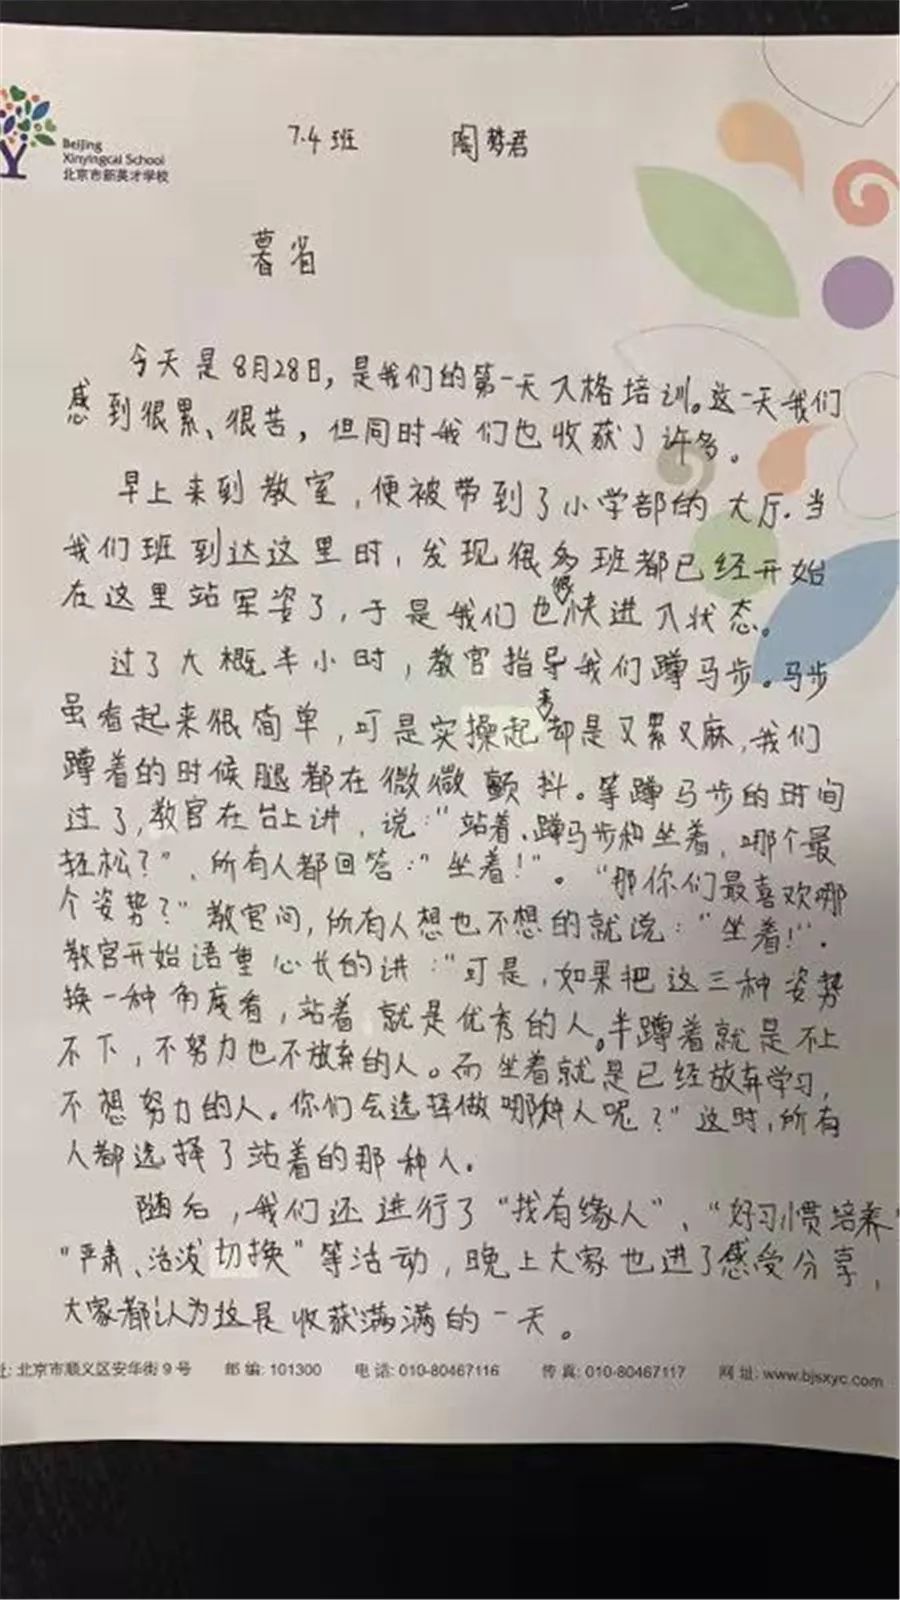 Beijing
Xinyingcai School
北京市新英才学校
7.4班 陶梦君
暮省
今天是8月28日,是我们的第一天入格培训。这一天我们
感到很累、很苦,但同时我们也收获了许多。
早上来到教室,便被带到了小学部的大厅.当
我们班到达这里时,发现很多班都已经开始
在这里站军姿了,于是我们也很快进入状态。
过了大概半小时,教官指导我们蹲马步。马步
虽看起来很简单,可是实操起来却是又累又麻,我们
蹲着的时候腿都在微微颤抖。等蹲马步的时间
过了,教官在台上讲,说:“站着、蹲马步和坐着,哪个最
轻松?”,所有人都回答:“坐着!”。“那你们最喜欢哪
个姿势?”教官问,所有人想也不想的就说:“坐着!”.
教官开始语重心长的讲:“可是,如果把这三种姿势
换一种角度看,站着就是优秀的人。半蹲着就是不上
不下,不努力也不放弃的人。而坐着就是已经放弃学习,
不想努力的人。你们会选择做哪种人呢?”这时,所有
人都选择了站着的那种人.
随后,我们还进行了“找有缘人”、“好习惯培养”
“严肃、活泼切换”等活动,晚上大家也进了感受分享,
大家都认为这是收获满满的一天。
址: 北京市顺义区安华街9号 邮编: 101300 电话: 010-80467116 传真: 010-80467117 网址: www.bjsxyc.com